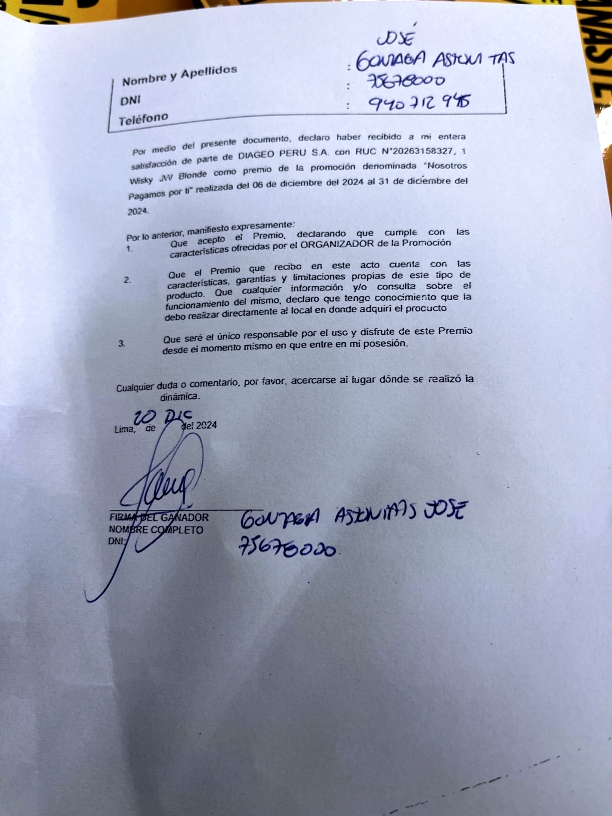 JOSÉ
Nombre y Apellidos : GONZAGA
DNI : 75678000
Teléfono : 940 712 945
Por medio del presente documento, declaro haber recibido a mi entera
satisfacción de parte de DIAGEO PERU S.A. con RUC N°20263158327, 1
Wisky JW Blonde como premio de la promoción denominada "Nosotros
Pagamos por ti" realizada del 06 de diciembre del 2024 al 31 de diciembre del
2024.
Por lo anterior, manifiesto expresamente:
1. Que acepto el Premio, declarando que cumple con las
características ofrecidas por el ORGANIZADOR de la Promoción
2. Que el Premio que recibo en este acto cuenta con las
características, garantías y limitaciones propias de este tipo de
producto. Que cualquier información y/o consulta sobre el
funcionamiento del mismo, declaro que tengo conocimiento que la
debo realizar directamente al local en donde adquirí el producto
3. Que seré el único responsable por el uso y disfrute de este Premio
desde el momento mismo en que entre en mi posesión.
Cualquier duda o comentario, por favor, acercarse al lugar dónde se realizó la
dinámica.
20 DIC
Lima, de del 2024
FIRMA DEL GANADOR
NOMBRE COMPLETO GONZAGA JOSE
DNI: 75678000